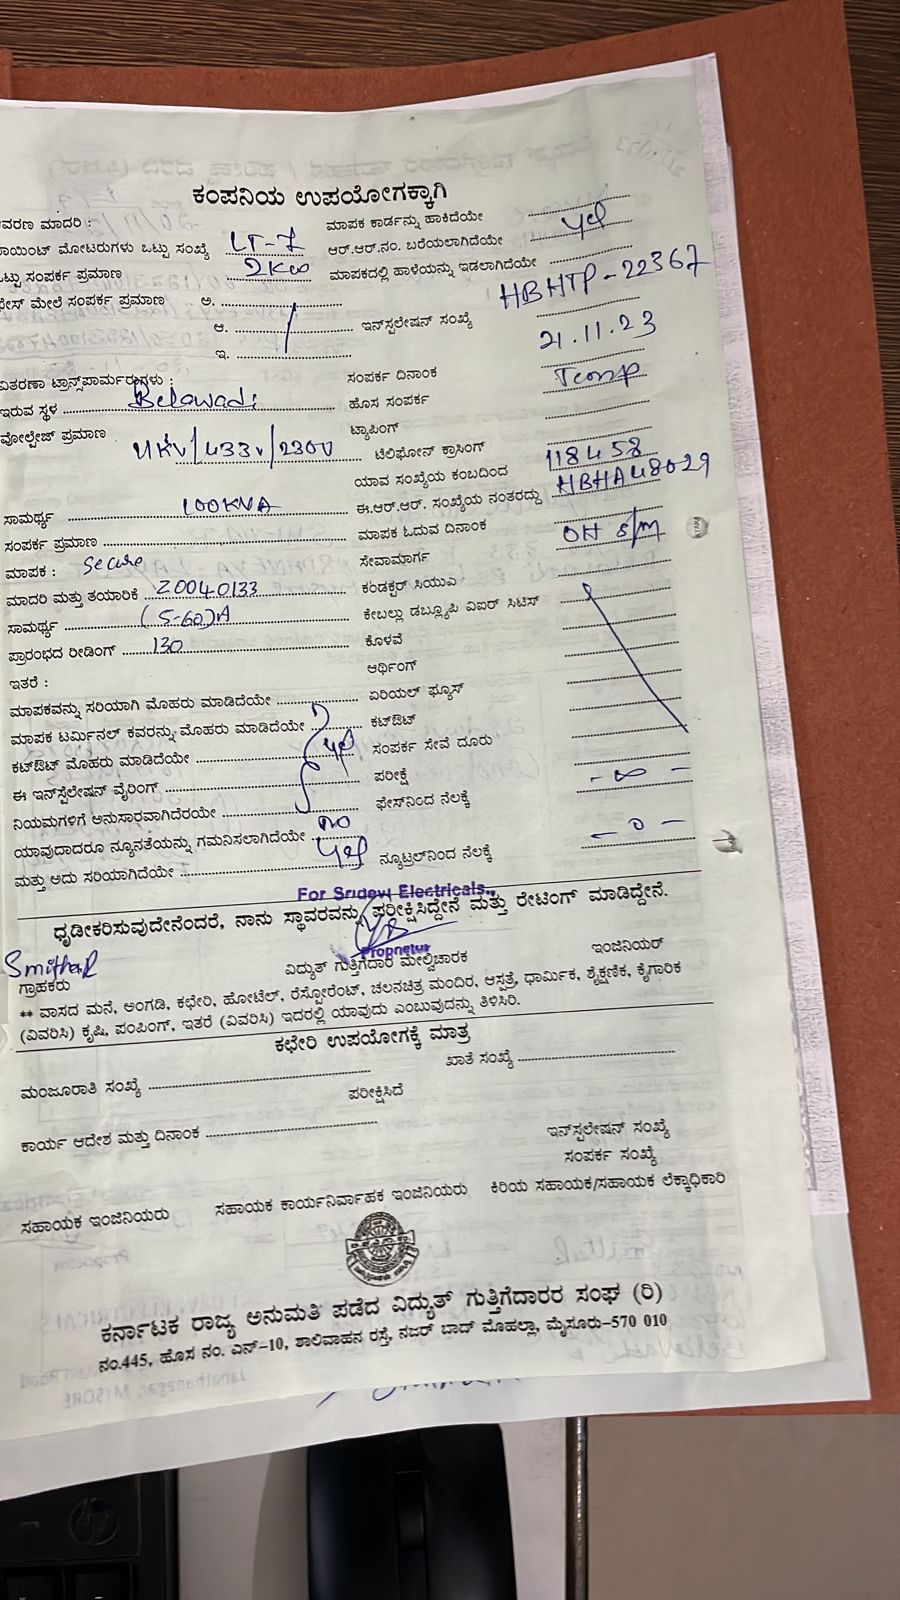 ಕಂಪನಿಯ ಉಪಯೋಗಕ್ಕಾಗಿ
ವರಣ ಮಾದರಿ : ಮಾಪಕ ಕಾರ್ಡನ್ನು ಹಾಕಿದೆಯೇ
ಾಯಿಂಟ್ ಮೋಟರುಗಳು ಒಟ್ಟು ಸಂಖ್ಯೆ LT-7 ಆರ್.ಆರ್.ನಂ. ಬರೆಯಲಾಗಿದೆಯೇ yes
ಒಟ್ಟು ಸಂಪರ್ಕ ಪ್ರಮಾಣ 2KW ಮಾಪಕದಲ್ಲಿ ಹಾಳೆಯನ್ನು ಇಡಲಾಗಿದೆಯೇ
ಫೇಸ್ ಮೇಲೆ ಸಂಪರ್ಕ ಪ್ರಮಾಣ ಅ. HBHTP-22367
ಆ. ಇನ್‌ಸ್ಪಲೇಷನ್ ಸಂಖ್ಯೆ
ಇ. 21.11.23
ವಿತರಣಾ ಟ್ರಾನ್ಸ್‌ಪಾರ್ಮರುಗಳು : ಸಂಪರ್ಕ ದಿನಾಂಕ
ಇರುವ ಸ್ಥಳ Belawadi ಹೊಸ ಸಂಪರ್ಕ Temp
ವೋಲ್ಟೇಜ್ ಪ್ರಮಾಣ 11KV/433v/230V ಟ್ಯಾಪಿಂಗ್
ಟೆಲಿಫೋನ್ ಕ್ರಾಸಿಂಗ್
ಯಾವ ಸಂಖ್ಯೆಯ ಕಂಬದಿಂದ 118458
ಸಾಮರ್ಥ್ಯ 100KVA ಈ.ಆರ್.ಆರ್. ಸಂಖ್ಯೆಯ ನಂತರದ್ದು HBHA48029
ಸಂಪರ್ಕ ಪ್ರಮಾಣ ಮಾಪಕ ಓದುವ ದಿನಾಂಕ
ಮಾಪಕ : Secure ಸೇವಾಮಾರ್ಗ OH S/M
ಮಾದರಿ ಮತ್ತು ತಯಾರಿಕೆ 20040133 ಕಂಡಕ್ಟರ್ ಸಿಯುಎ
ಸಾಮರ್ಥ್ಯ (5-60)A ಕೇಬಲ್ಲು ಡಬ್ಲ್ಯೂಪಿ ವಿಐಆರ್ ಸಿಟಿಸ್
ಪ್ರಾರಂಭದ ರೀಡಿಂಗ್ 130 ಕೊಳವೆ
ಇತರೆ : ಆರ್ಥಿಂಗ್
ಮಾಪಕವನ್ನು ಸರಿಯಾಗಿ ಮೊಹರು ಮಾಡಿದೆಯೇ ಏರಿಯಲ್ ಫ್ಯೂಸ್
ಮಾಪಕ ಟರ್ಮಿನಲ್ ಕವರನ್ನು ಮೊಹರು ಮಾಡಿದೆಯೇ ಕಟ್‌ಔಟ್
ಕಟ್‌ಔಟ್ ಮೊಹರು ಮಾಡಿದೆಯೇ yes ಸಂಪರ್ಕ ಸೇವೆ ದೂರು
ಈ ಇನ್‌ಸ್ಪೆಲೇಷನ್ ವೈರಿಂಗ್ ಪರೀಕ್ಷೆ
ನಿಯಮಗಳಿಗೆ ಅನುಸಾರವಾಗಿದೆರಯೇ ಫೇಸ್‌ನಿಂದ ನೆಲಕ್ಕೆ - ∞ -
ಯಾವುದಾದರೂ ನ್ಯೂನತೆಯನ್ನು ಗಮನಿಸಲಾಗಿದೆಯೇ no
ಮತ್ತು ಅದು ಸರಿಯಾಗಿದೆಯೇ yes ನ್ಯೂಟ್ರಲ್‌ನಿಂದ ನೆಲಕ್ಕೆ - 0 -
For Sridevi Electricals.,
ಧೃಡೀಕರಿಸುವುದೇನೆಂದರೆ, ನಾನು ಸ್ಥಾವರವನ್ನು ಪರೀಕ್ಷಿಸಿದ್ದೇನೆ ಮತ್ತು ರೇಟಿಂಗ್ ಮಾಡಿದ್ದೇನೆ.
Smitha R
Proprietor
ಗ್ರಾಹಕರು ವಿದ್ಯುತ್ ಗುತ್ತಿಗೆದಾರ ಮೇಲ್ವಿಚಾರಕ ಇಂಜಿನಿಯರ್
** ವಾಸದ ಮನೆ, ಅಂಗಡಿ, ಕಛೇರಿ, ಹೋಟೆಲ್, ರೆಸ್ಟೋರೆಂಟ್, ಚಲನಚಿತ್ರ ಮಂದಿರ, ಆಸ್ಪತ್ರೆ, ಧಾರ್ಮಿಕ, ಶೈಕ್ಷಣಿಕ, ಕೈಗಾರಿಕ
(ವಿವರಿಸಿ) ಕೃಷಿ, ಪಂಪಿಂಗ್, ಇತರೆ (ವಿವರಿಸಿ) ಇದರಲ್ಲಿ ಯಾವುದು ಎಂಬುವುದನ್ನು ತಿಳಿಸಿರಿ.
ಕಛೇರಿ ಉಪಯೋಗಕ್ಕೆ ಮಾತ್ರ
ಮಂಜೂರಾತಿ ಸಂಖ್ಯೆ ಖಾತೆ ಸಂಖ್ಯೆ
ಪರೀಕ್ಷಿಸಿದೆ
ಕಾರ್ಯ ಆದೇಶ ಮತ್ತು ದಿನಾಂಕ
ಇನ್‌ಸ್ಪಲೇಷನ್ ಸಂಖ್ಯೆ
ಸಂಪರ್ಕ ಸಂಖ್ಯೆ
ಸಹಾಯಕ ಇಂಜಿನಿಯರು ಸಹಾಯಕ ಕಾರ್ಯನಿರ್ವಾಹಕ ಇಂಜಿನಿಯರು ಕಿರಿಯ ಸಹಾಯಕ/ಸಹಾಯಕ ಲೆಕ್ಕಾಧಿಕಾರಿ
ಕರ್ನಾಟಕ ರಾಜ್ಯ ಅನುಮತಿ ಪಡೆದ ವಿದ್ಯುತ್ ಗುತ್ತಿಗೆದಾರರ ಸಂಘ (ರಿ)
ನಂ.445, ಹೊಸ ನಂ. ಎನ್-10, ಶಾಲಿವಾಹನ ರಸ್ತೆ, ನಜರ್ ಬಾದ್ ಮೊಹಲ್ಲಾ, ಮೈಸೂರು-570 010